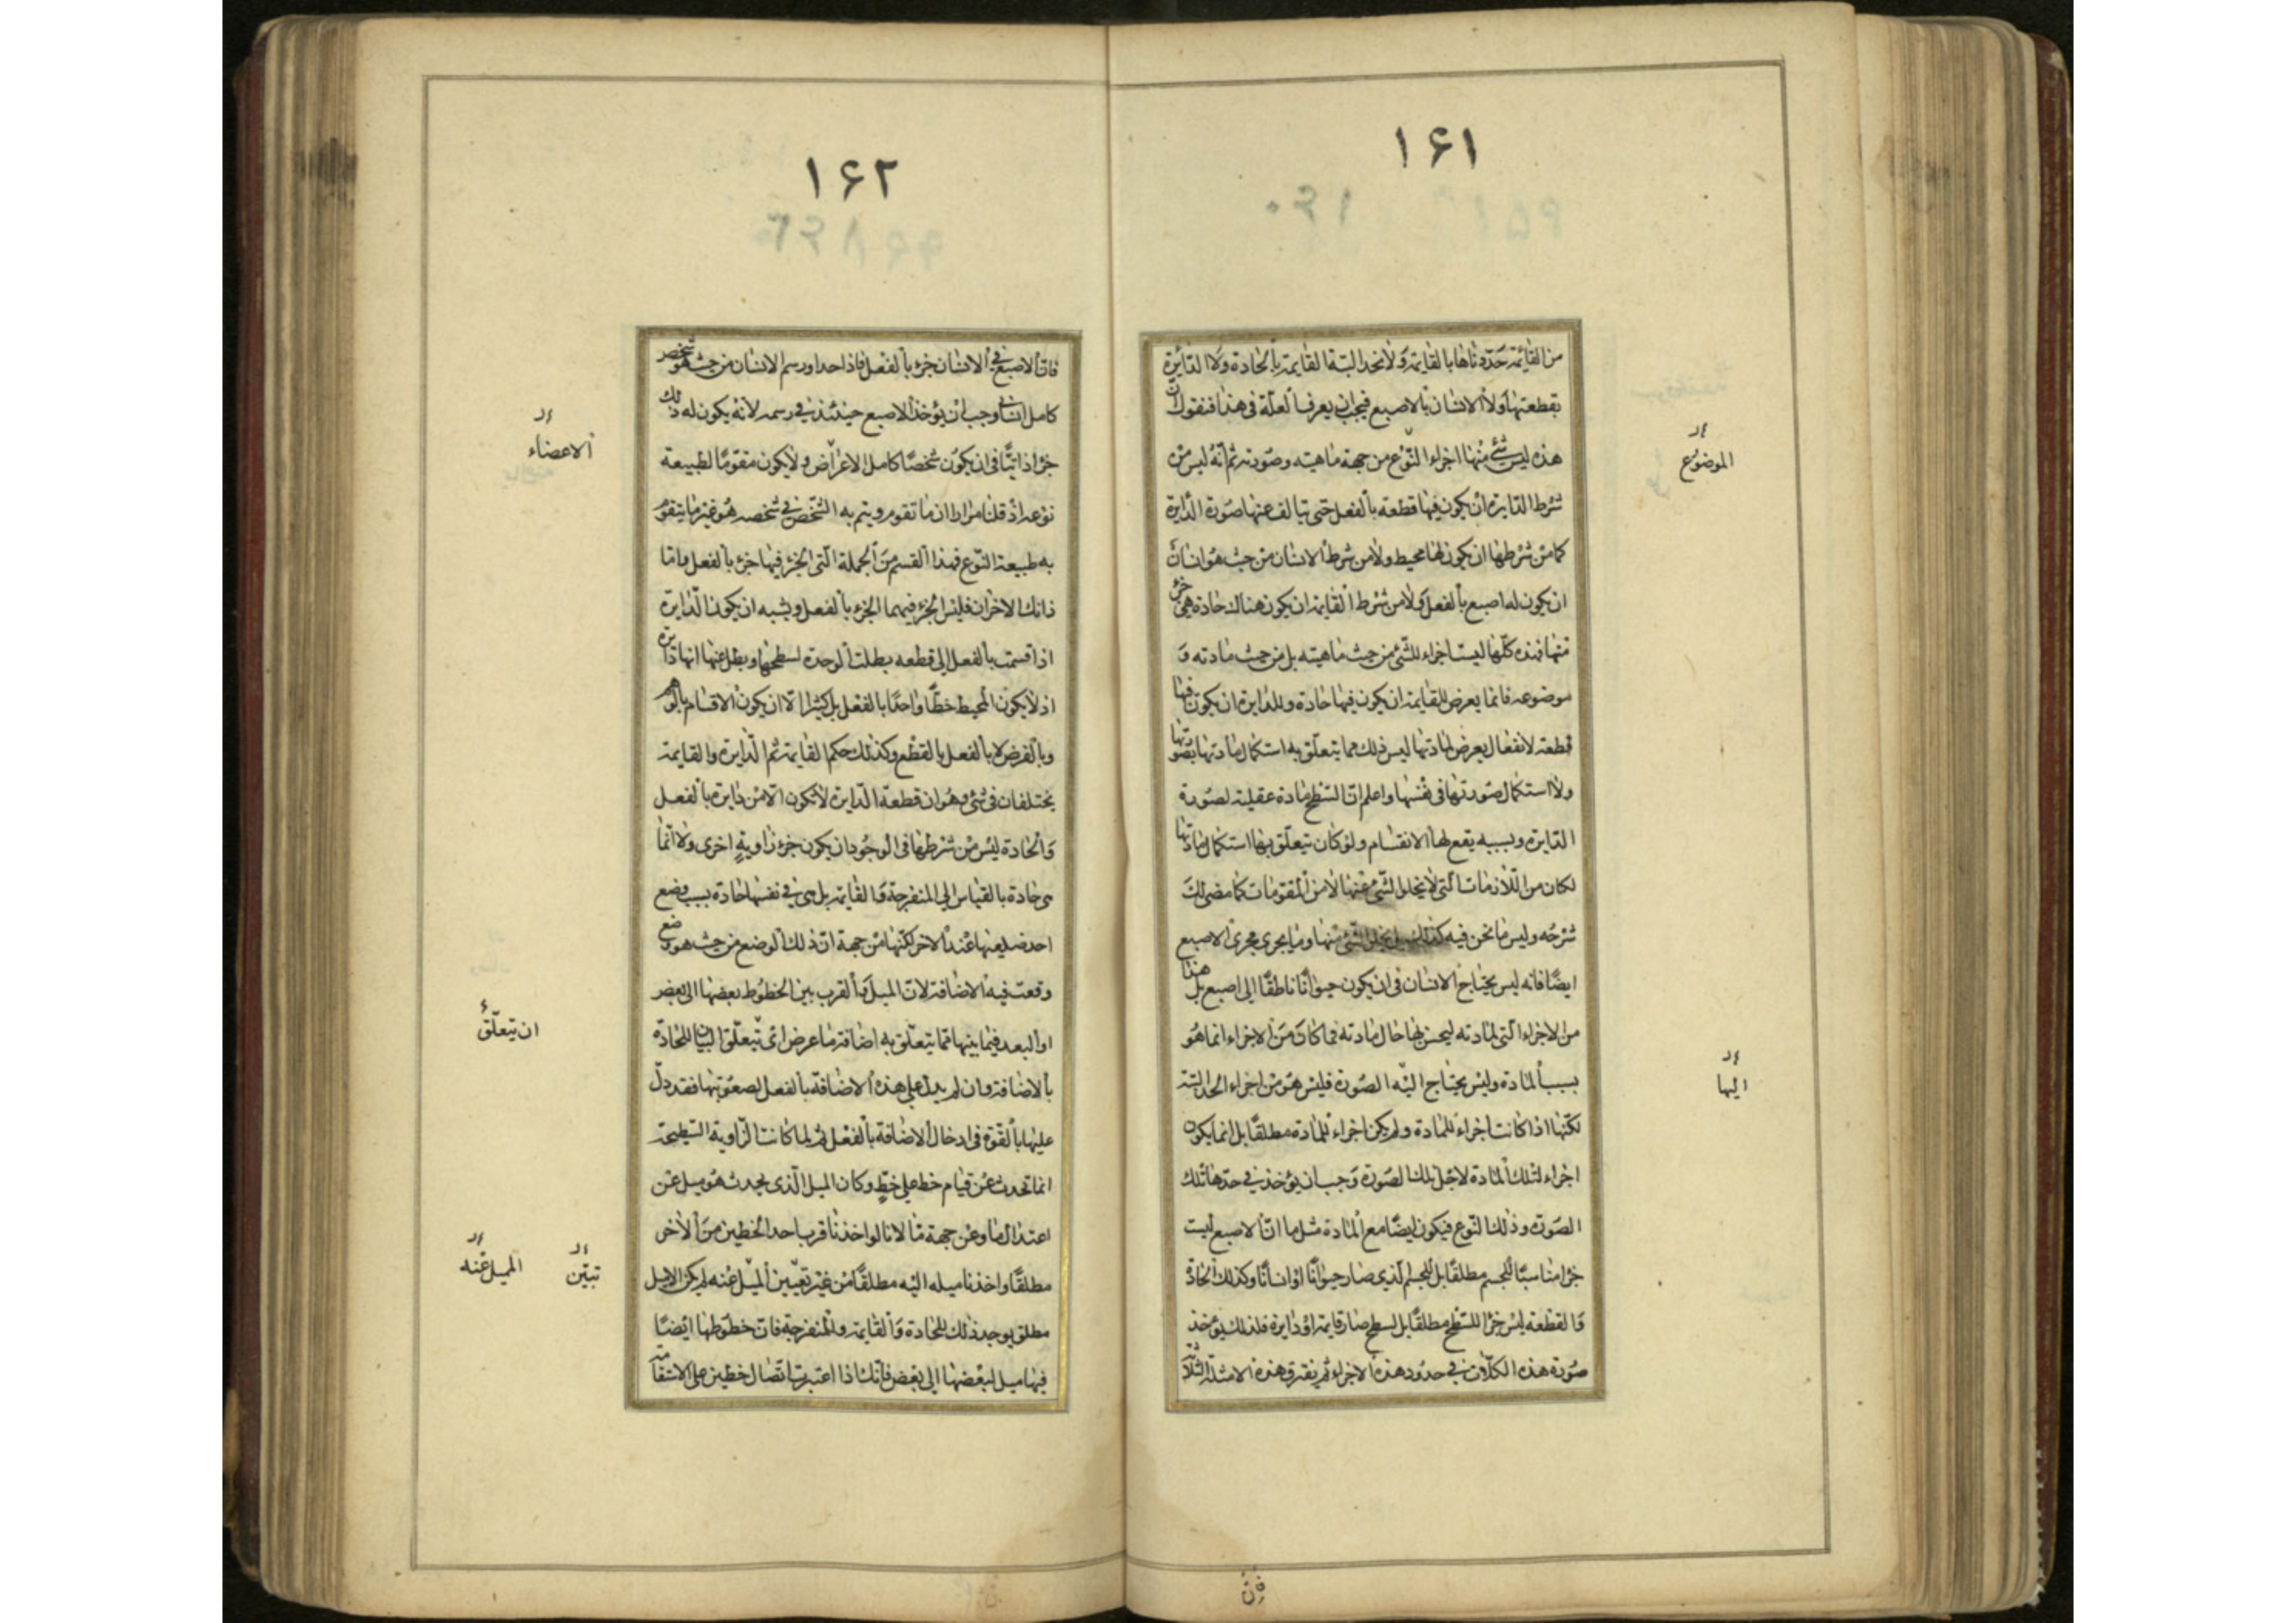 ۱۶۱
من القائمة حددناها بالقايمة ولانحد البتة القايمة بالحادة ولا الدائرة
بقطعتها ولا الانسان بالاصبع فيجب ان يعرف العلة فى هذا فنقول ان
هذه ليس شئ منها اجزاء النوع من جهة ماهيته وصورته ثم انه ليس من
شرط الدايرة ان يكون فيها قطعه بالفعل حتى تتالف عنها صورة الدايرة
كما من شرطها ان يكون لها محيط ولا من شرط الانسان من حيث هو انسان
ان يكون له اصبع بالفعل ولا من شرط القايمة ان يكون هناك حادة هى جزء
منها فهذه كلها ليست اجزاء للشئ من حيث ماهيته بل من حيث مادته و
موضوعه فانما يعرض للقايمة ان يكون فيها حادة وللدايرة ان يكون فيها
قطعة لانفعال يعرض لمادتها ليس ذلك مما يتعلق به استكمال مادتها بصورتها
ولا استكمال صورتها فى نفسها واعلم ان السطح مادة عقلية لصورة
الدايرة وبسببه يقع لها الانقسام ولو كان يتعلق بها استكمال مادتها
لكان من اللازمات التى لا يخلد الشئ عنها لا من المقومات كما مضى لك
شرحه وليس ما نحن فيه كذلك بل يخلو الشئ منها وما يجرى مجرى الاصبع
ايضًا فانه ليس يحتاج الانسان فى ان يكون حيوانًا ناطقًا الى اصبع بل هذا
من الاجزاء التى لمادته ليحسن بها حال مادته فما كان من الاجزاء انما هو
بسبب المادة وليس يحتاج اليه الصورة فليس هو من اجزاء الحد البتة
لكنها اذا كانت اجزاء للمادة ولم يكن اجزاء للمادة مطلقًا بل انما يكون
اجزاء لتلك المادة لاجل تلك الصورة وجب ان يؤخذ فى حدها تلك
الصورة وذلك النوع فيكون ايضًا مع المادة مثل ما ان الاصبع ليست
جزا مناسبًا للجسم مطلقًا بل للجسم الذى صار حيوانًا او انسانًا وكذلك الحادة
والقطعه ليس جزا للسطح مطلقًا بل لسطح صار قايمة او دايرة فلذلك يؤخذ
صورة هذه الكلات فى حدود هذه الاجزاء ثم يفترق هذه الامثلة الثلاثة
الموضوع
اليها
فان
۱۶۲
فان الاصبع فى الانسان جزء بالفعل فاذا حد او رسم الانسان من حيث هو شخص
كامل انسانى وجب ان يؤخذ الاصبع حينئذ فى رسمه لانه يكون له ذلك
جزا ذاتيًا فى ان يكون شخصًا كامل الاعراض ولا يكون مقومًا لطبيعة
نوعه اذ قلنا مرارا ان ما تقوم ويتم به الشخص فى شخصه هو غير ما يتقوم
به طبيعة النوع فهذا القسم من الجملة التى الجزء فيها جزء بالفعل واما
ذانك الاخران فليس الجزء فيهما الجزء بالفعل ويشبه ان يكون الدايرة
اذا قسمت بالفعل الى قطعه بطلت الوحدة لسطحها وبطل عنها انها دايرة
اذ لا يكون المحيط خطًا واحدًا بالفعل بل كثيرا الا ان يكون الاقسام بالوهم
وبالفرض لا بالفعل بالقطع وكذلك حكم القايمة ثم الدايرة والقايمة
يختلفان فى شئ وهو ان قطعة الدايرة لا تكون الا من دايرة بالفعل
والحادة ليس من شرطها فى الوجود ان يكون جزء زاوية اخرى ولا انما
هى حادة بالقياس الى المنفرجة والقايمة بل هى فى نفسها حادة بسبب وضع
احد ضلعيها عند الاخر لكنها من جهة ان ذلك الوضع من حيث هو وضع
وقعت فيه الاضافة لان الميل والقرب بين الخطوط بعضها الى بعض
او البعد فيما بينها مما يتعلق به اضافة ما عرض اى يتعلق البيان للحادة
بالاضافة وان لم يدل على هذه الاضافة بالفعل لصعوبتها فقد دل
عليها بالقوة فى ادخال الاضافة بالفعل ثم لما كانت الزاوية السطيحة
انما تحدث عن قيام خط على خط وكان الميل الذى يحدث هو ميل عن
اعتدال ما وعن جهة ما لانا لو اخذنا قرب احد الخطين من الاخر
مطلقًا واخذنا ميله اليه مطلقًا من غير تعيين الميل عنه لم يكن الا ميل
مطلق يوجد ذلك للحادة والقايمة والمنفرجة فان خطوطها ايضًا
فيها ميل لبعضها الى بعض فانك اذا اعتبرت اتصال خطين على الاستقامة
الاعضاء
ان يتعلق
تبين
الميل عنه